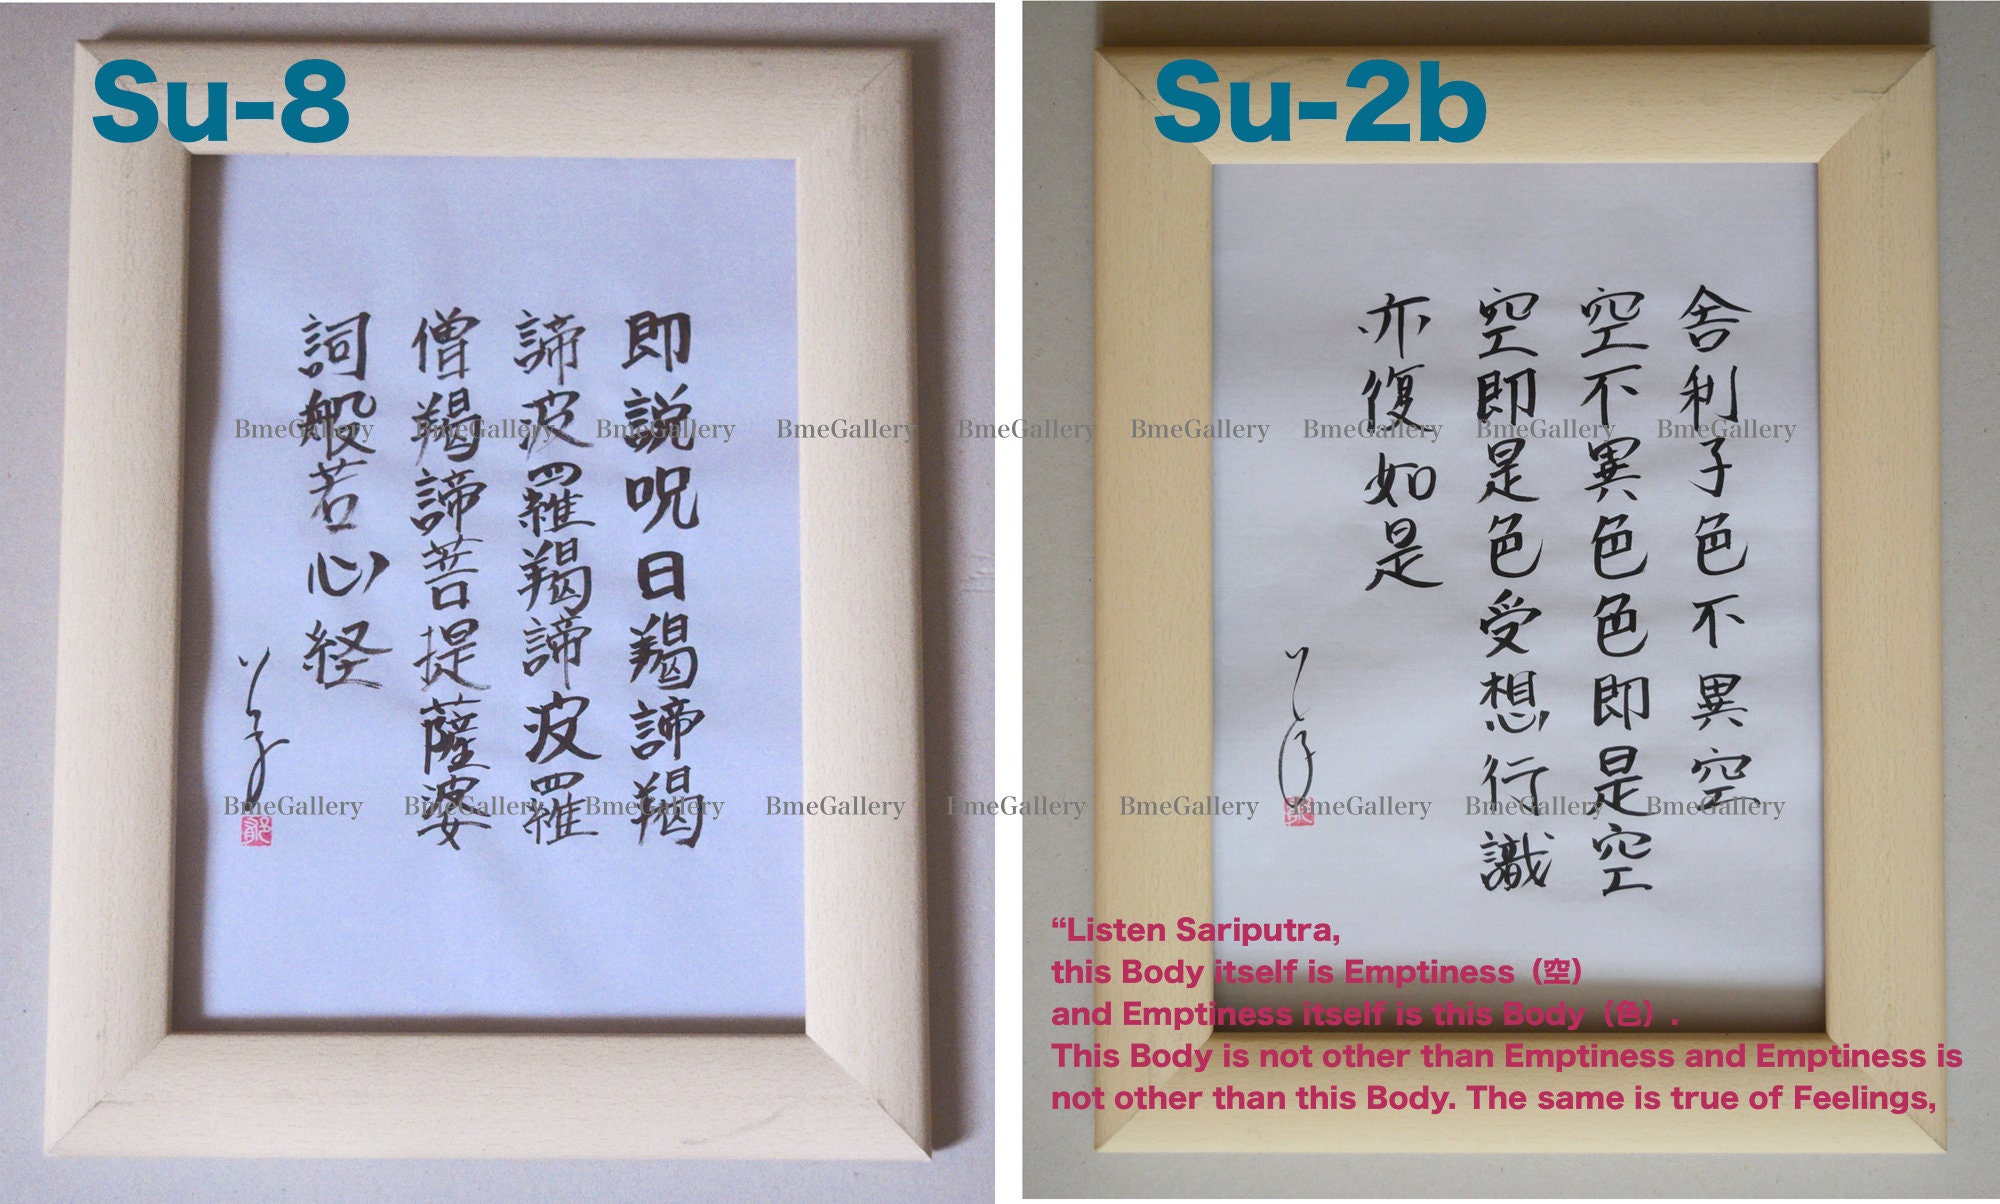 Su-8
即説呪曰羯諦羯
諦波羅羯諦波羅
僧羯諦菩提薩婆
詞般若心経
Su-2b
舎利子色不異空
空不異色色即是空
空即是色受想行識
亦復如是
“Listen Sariputra,
this Body itself is Emptiness（空）
and Emptiness itself is this Body（色）.
This Body is not other than Emptiness and Emptiness is
not other than this Body. The same is true of Feelings,
BmeGallery BmeGallery BmeGallery BmeGallery BmeGallery BmeGallery BmeGallery BmeGallery BmeGallery
BmeGallery BmeGallery BmeGallery BmeGallery BmeGallery BmeGallery BmeGallery BmeGallery BmeGallery